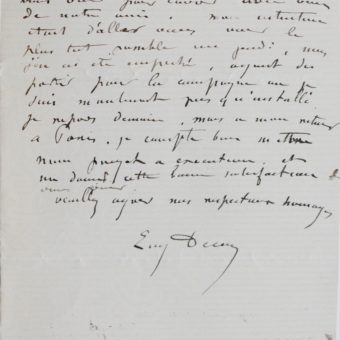 de notre amie. mon intention
était d'aller vous voir le
plus tôt possible un jeudi, mais
j'en ai été empêché, ayant dû
partir pour la campagne où je
suis maintenant presqu'installé
je repars demain, mais à mon retour
à Paris, je compte bien mettre
mon projet à exécution et
me donner cette bonne satisfaction
veuillez agréer mes respectueux hommages
Eug